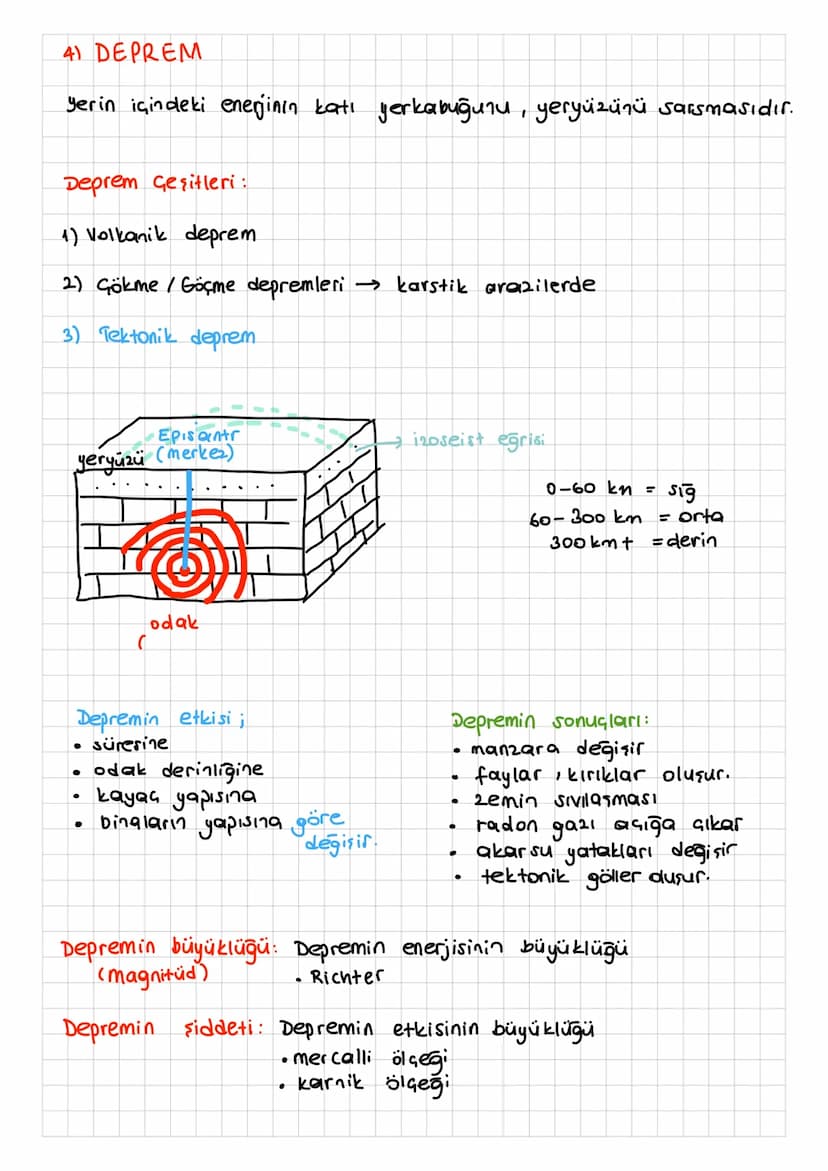 4) DEPREM
Yerin içindeki enerjinin katı yerkabuğunu, yeryüzünü sarsmasıdır.
Deprem Çeşitleri:
1) Volkanik deprem
2) Çökme / Göçme depremleri → karstik arazilerde
3) Tektonik deprem
Episantr
(merkez)
yeryüzü
→ izoseist eğrisi
0-60 km = sığ
60-300 km = orta
300 km + = derin
odak
(
Depremin etkisi;
• süresine
• odak derinliğine
• kayaç yapısına
• binaların yapısına göre
değişir.
Depremin sonuçları:
• manzara değişir
• faylar, kırıklar oluşur.
• zemin sıvılaşması
• radon gazı açığa çıkar
• akarsu yatakları değişir
• tektonik göller oluşur.
Depremin büyüklüğü: Depremin enerjisinin büyüklüğü
(magnitüd)
• Richter
Depremin şiddeti: Depremin etkisinin büyüklüğü
• mercalli ölçeği
• karnik ölçeği